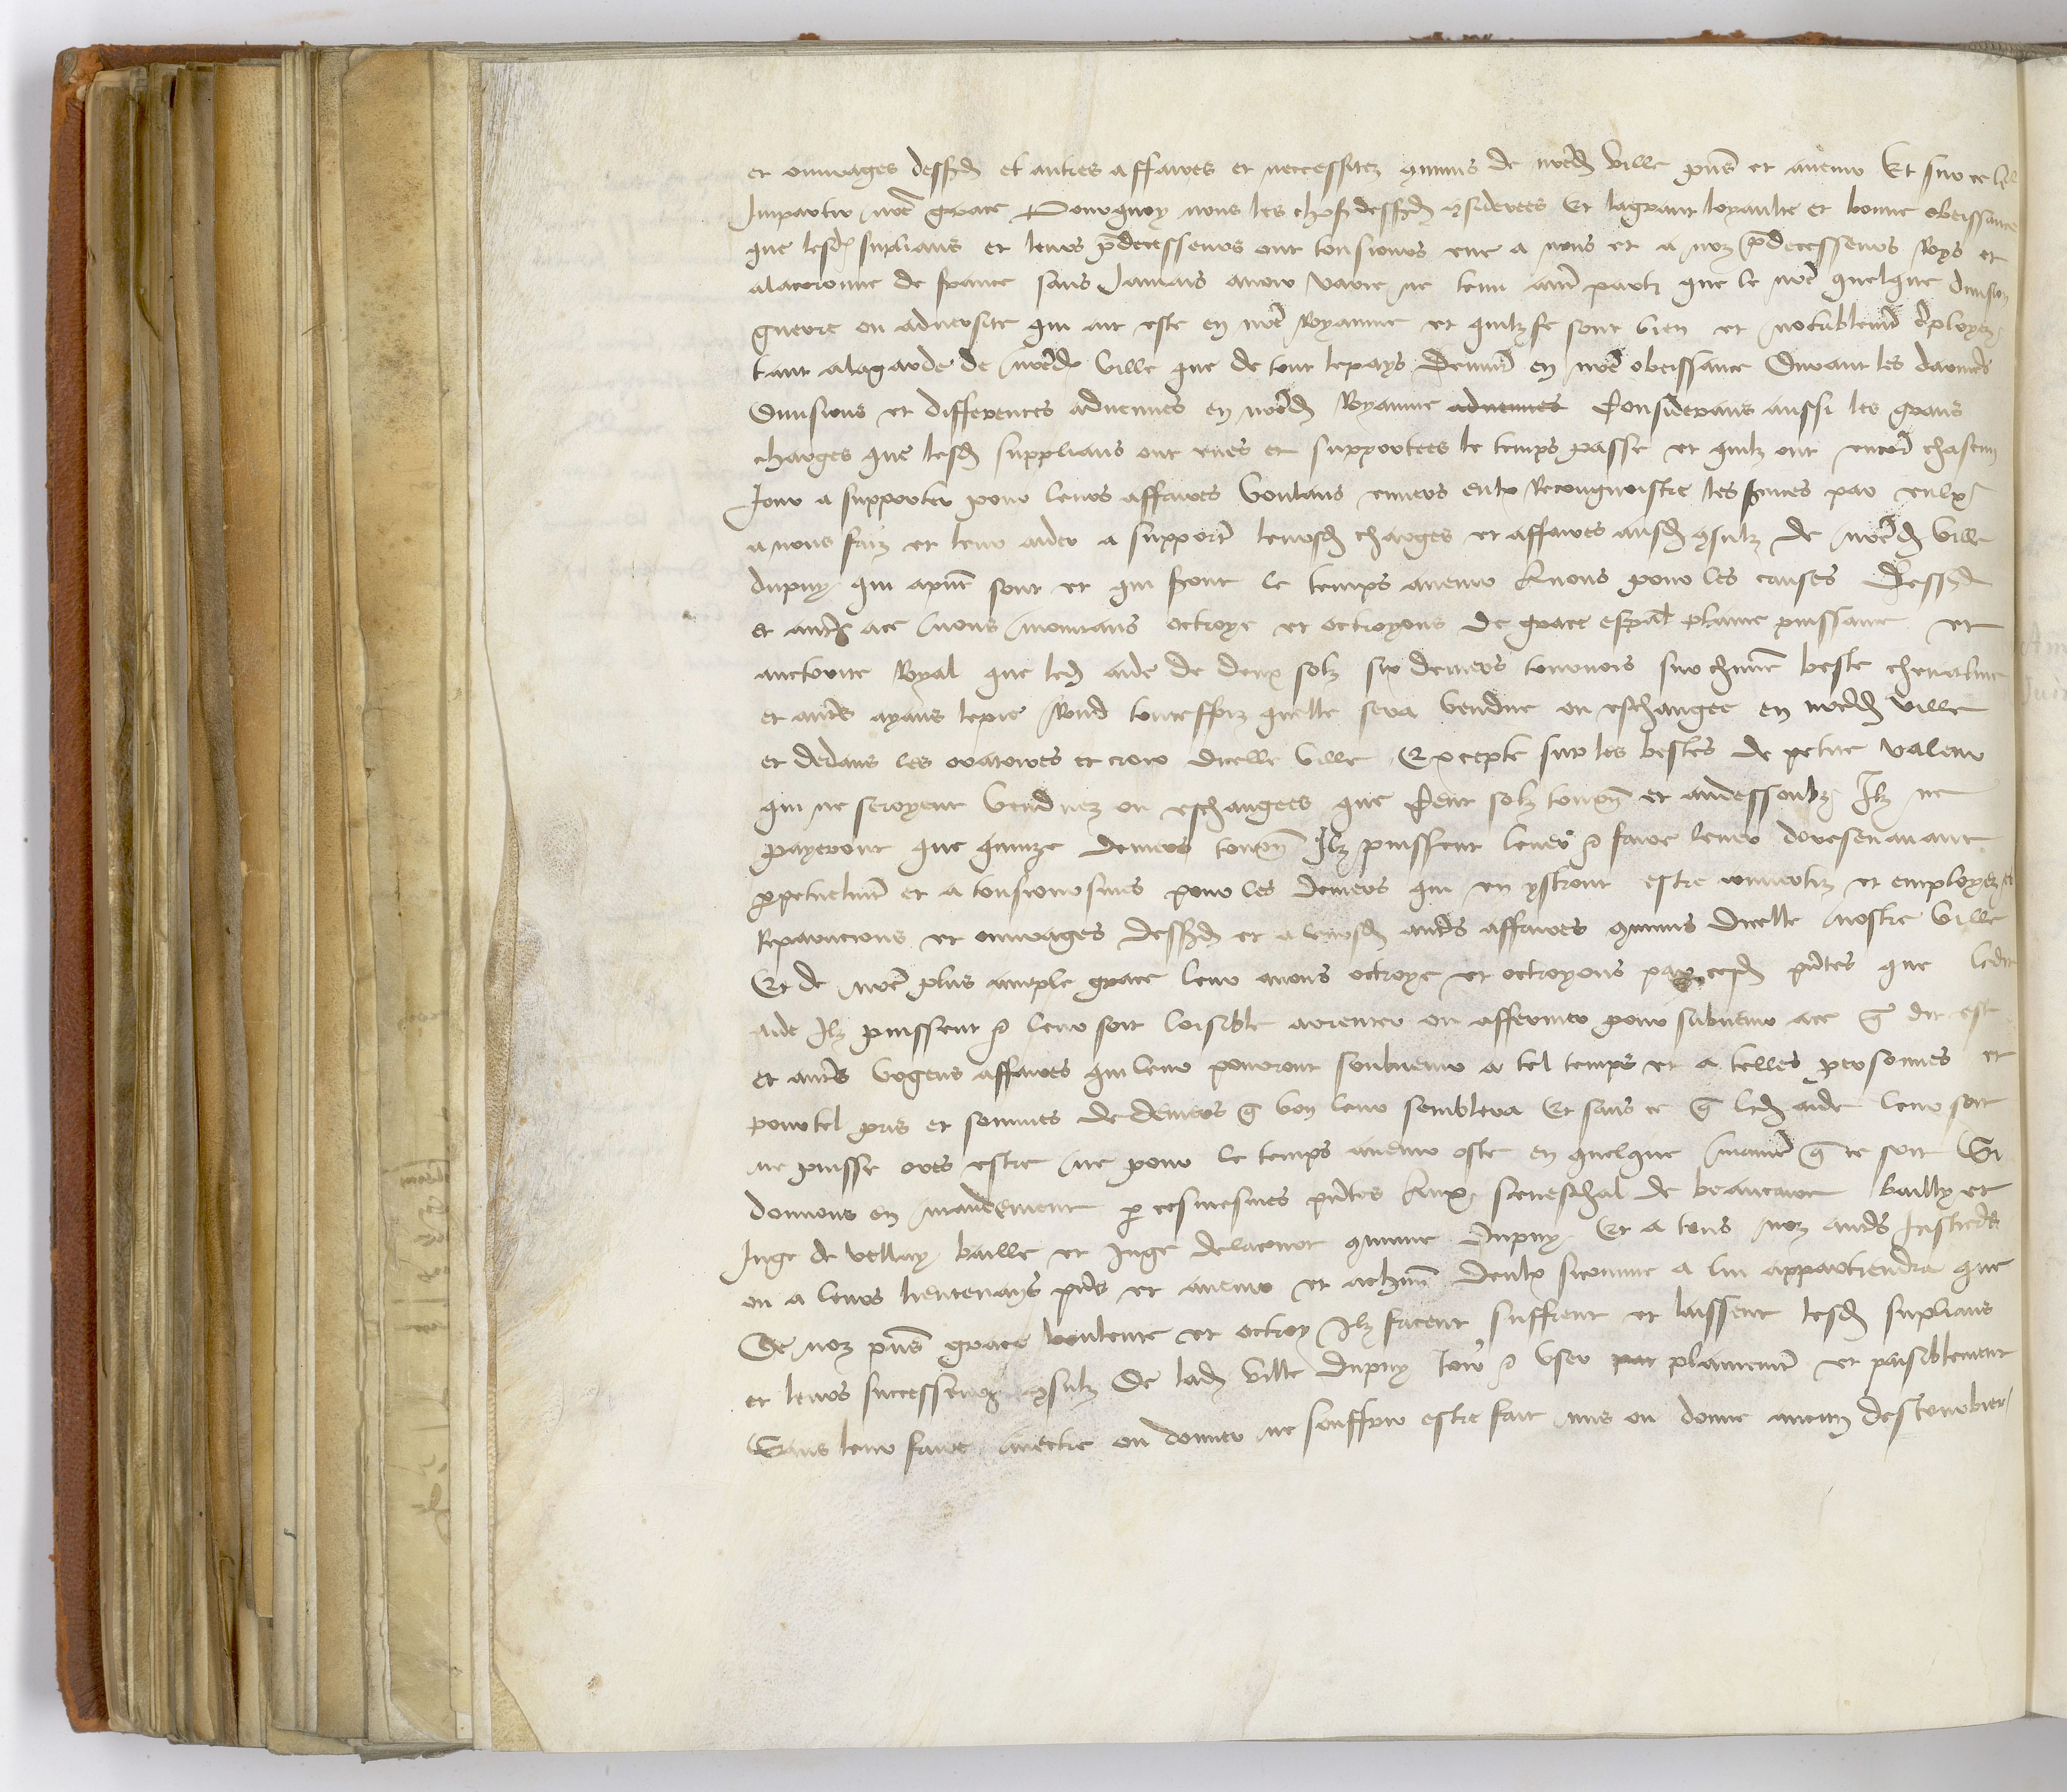 et ouvrages dessusd et autres affaires et neccessitez 9muns de nred ville pns et avenir Et sur ce leur
Impartir nre grace Pourquoy nous les choses dessusd 9siderees Et lagrant loyaulte et bonne obeissance
que lesd suplians et leurs predecesseurs ont tousiours eue a nous et a noz predecesseurs Roys et
alacoronne de france sans Jamais avoir varie ne tenu autre parti que le nre quelque division
guerre ou adversite qui ait este en nre Royaume et quilz se sont bien et notablemt employez
tant alagarde de nred ville que de tout lepays Demeure en nre obeissance Durant les darnieres
Divisions et differences advenues en nred Royaume advenues Considerans aussi les grans
charges que lesd supplians ont eues et supportees le temps passe et quilz ont encore chascun
Jour a supporter pour leurs affaires Voulans envers eulx Recongnoistre les services par eulx
a nous faiz et leur aider a supporter leursd charges et affaires ausd 9sulz de nred ville
dupuy qui apnt sont et qui seront le temps avenir Avons pour les causes Dessusd
et autres ace nous mouvans octroye et octroyons de grace espal plaine puissance et
auctorite Royal que led aide de deux solz six deniers tournois sur chune beste chevaline
et autres ayans lepie Rond toutesfoiz quelle sera vendue ou eschangee en nred ville
et dedans les oratoires et croix dicelle ville Excepte sur les bestes de petite valeur
qui ne seroyent venduez ou eschangees que Cent solz tourn et audessoubz Ilz ne
payeront que quinze deniers tourn Ilz puissent lever & faire lever doresenavant
ppetuelmt et a tousioursmes pour les deniers qui en ystront estre convertiz et employez es
Reparacions et ouvrages dessusd et a leursd autres affaires 9muns dicelle nostre ville
Et de nre plus ample grace leur avons octroye et octroyons par cesd pntes que ledit
aide Ilz puissent & leur soit loisible arenter ou affermer pour subvenir ace q dit est
et autres urgens affaires qui leur pourront soubvenir a tel temps et a telles personnes et
pour tel pris et sommes de deniers q bon leur semblera Et sans ce q led aide leur soit
ne puisse ores estre ne pour le temps avenir oste en quelque maniere q ce soit Si
donnons en mandement p cesmesmes pntes Aux seneschal de beaucaire bailly et
Juge de vellay baille et Juge delacourt 9mune dupuy Et a tous noz autres Justiciers
ou a leurs lieutenans pns et avenir et achun deulx sicomme a lui appartiendra que
De noz pns grace voulente et octroy Ilz facent suffrent et laissent lesd suplians
et leurs successeurs 9sulz de lad ville dupuy Joir & user par plainemt et paisiblement
Sans leur faire mectre ou donner ne souffrir estre fait mis ou donne aucun destourbier